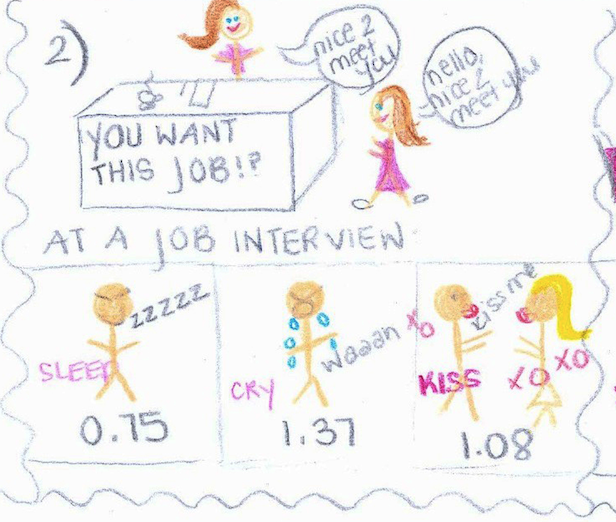 2)
nice 2
meet
you
hello,
nice 2
meet you
YOU WANT
THIS JOB!?
AT A JOB INTERVIEW
zzzzz
SLEEP
0.75
Waaan
CRY
1.37
Kiss me
XO
KISS
XO
XO
1.08